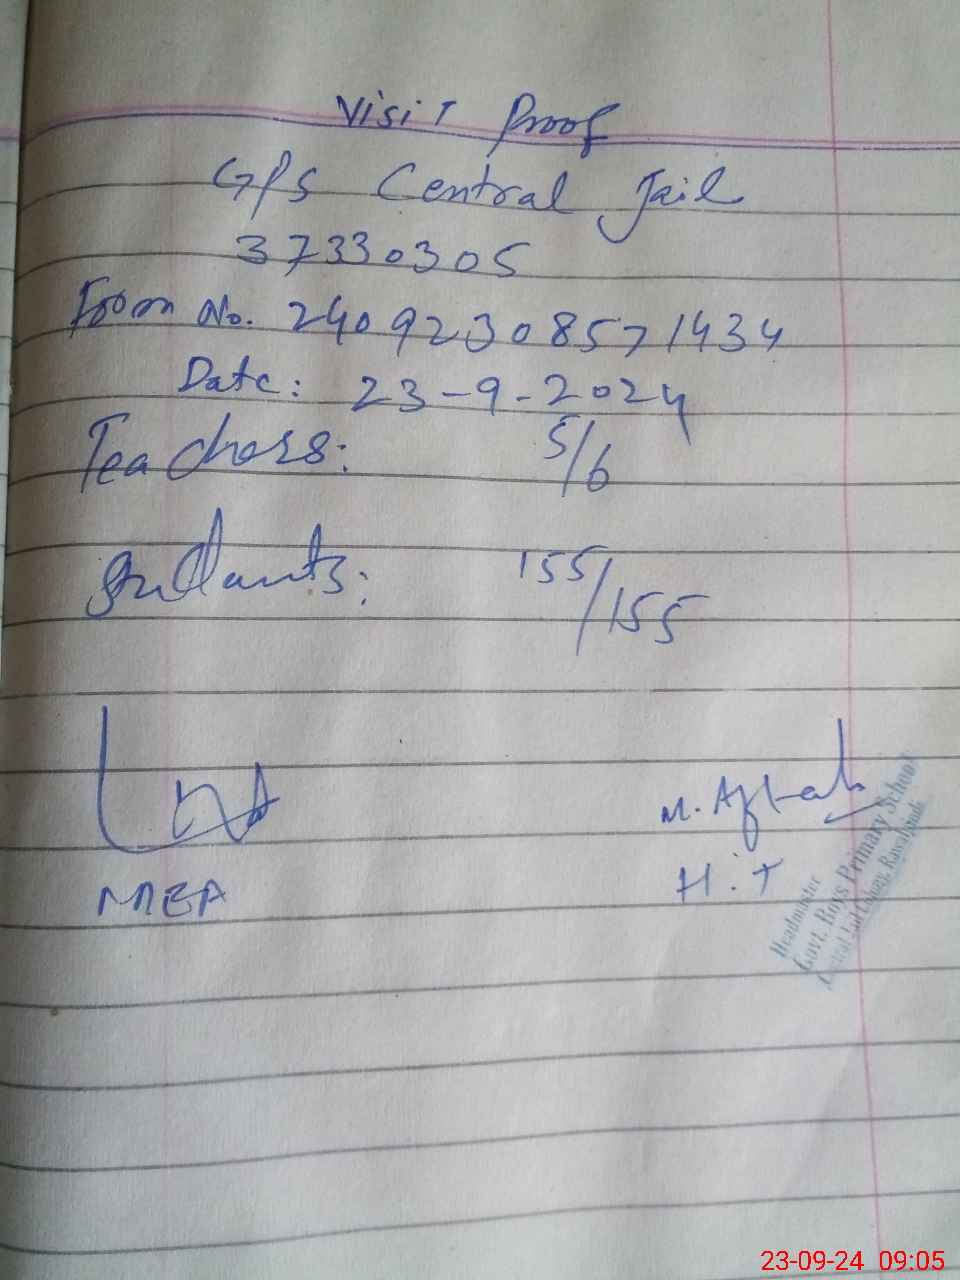 Visit Proof
GPS Central Jail
37330305
From No. 24092308571434
Date: 23-9-2024
Teachers: 5/6
Students: 155/155
MEA
M. Aftab
H.T
Headmaster
Govt. Boys Primary School
Central Jail Rawalpindi
23-09-24 09:05